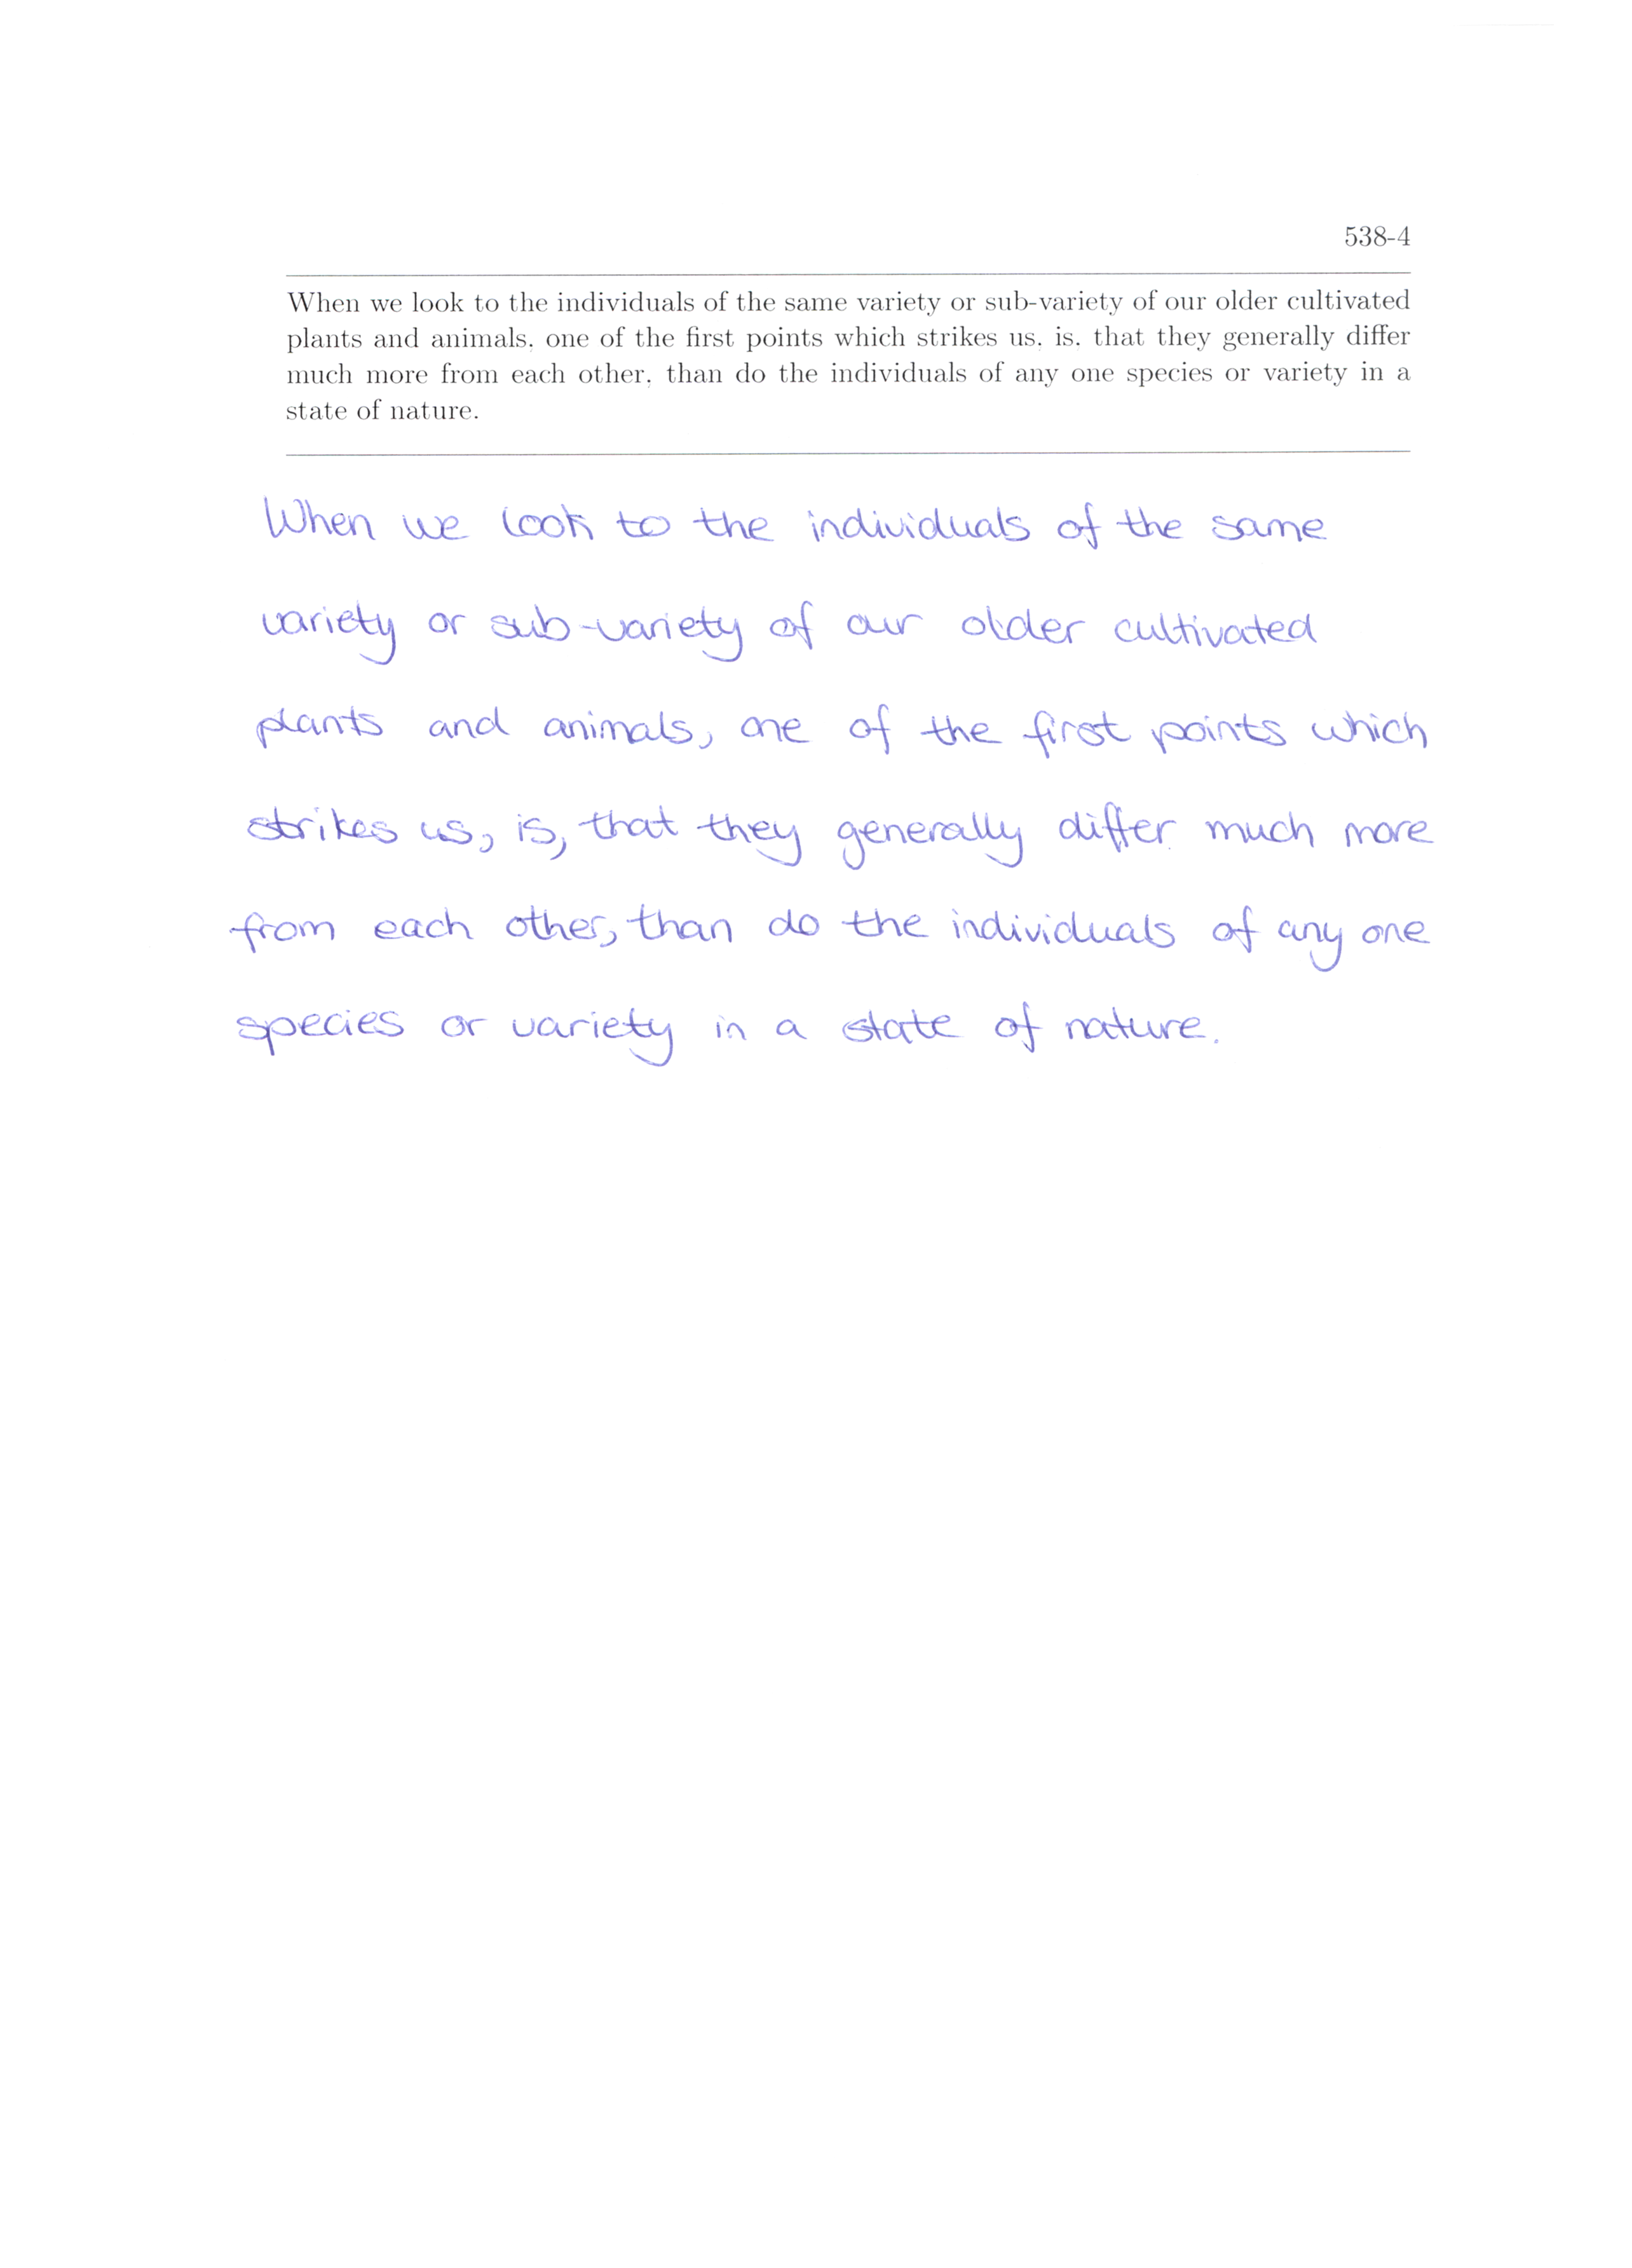 538-4
When we look to the individuals of the same variety or sub-variety of our older cultivated
plants and animals, one of the first points which strikes us, is, that they generally differ
much more from each other, than do the individuals of any one species or variety in a
state of nature.
When we look to the individuals of the same
variety or sub-variety of our older cultivated
plants and animals, one of the first points which
strikes us, is, that they generally differ much more
from each other, than do the individuals of any one
species or variety in a state of nature.